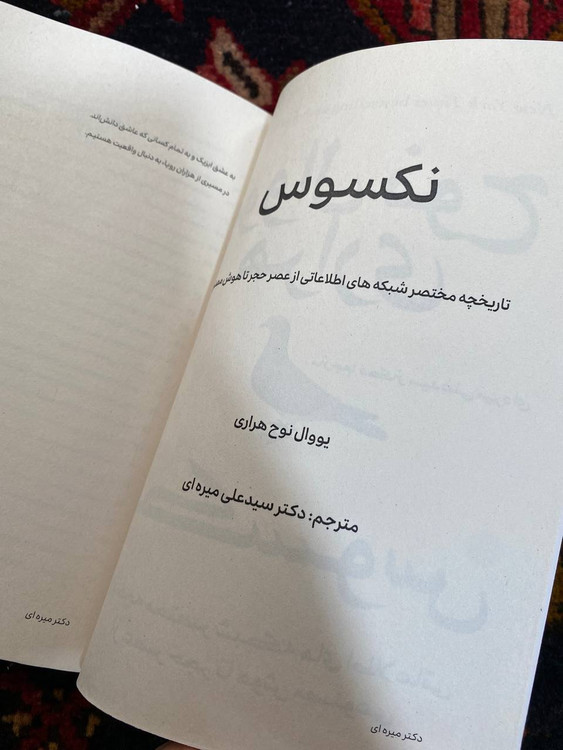 نکسوس
تاریخچه مختصر شبکه های اطلاعاتی از عصر حجر تا هوش
یووال نوح هراری
مترجم: دکتر سیدعلی میره ای
دکتر میره ای
به عشق ایزیک و به تمام کسانی که عاشق دانش‌اند.
در مسیری از هزاران رویا، به دنبال واقعیت هستیم.
دکتر میره ای